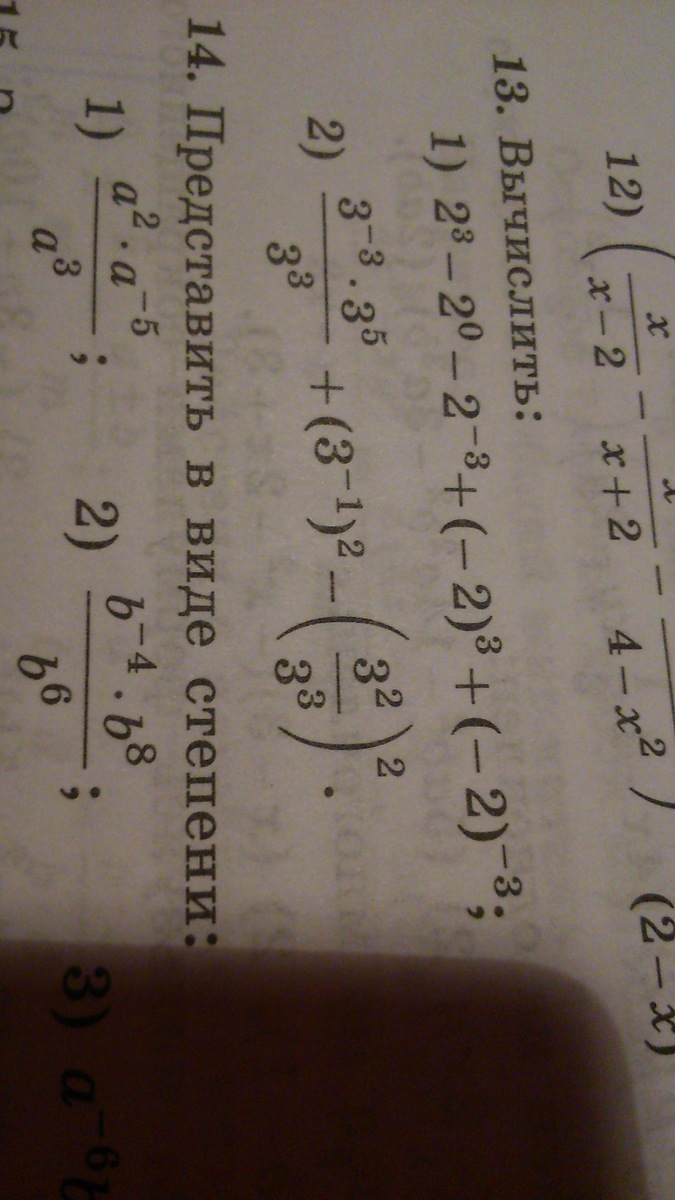 12) (x/(x−2) − x/(x+2) − /(4−x²)) (2−x)
13. Вычислить:
1) 2³ − 2⁰ − 2⁻³ + (−2)³ + (−2)⁻³;
2) (3⁻³ · 3⁵)/3³ + (3⁻¹)² − (3²/3³)².
14. Представить в виде степени:
1) (a² · a⁻⁵)/a³; 2) (b⁻⁴ · b⁸)/b⁶; 3) a⁻⁶b
15